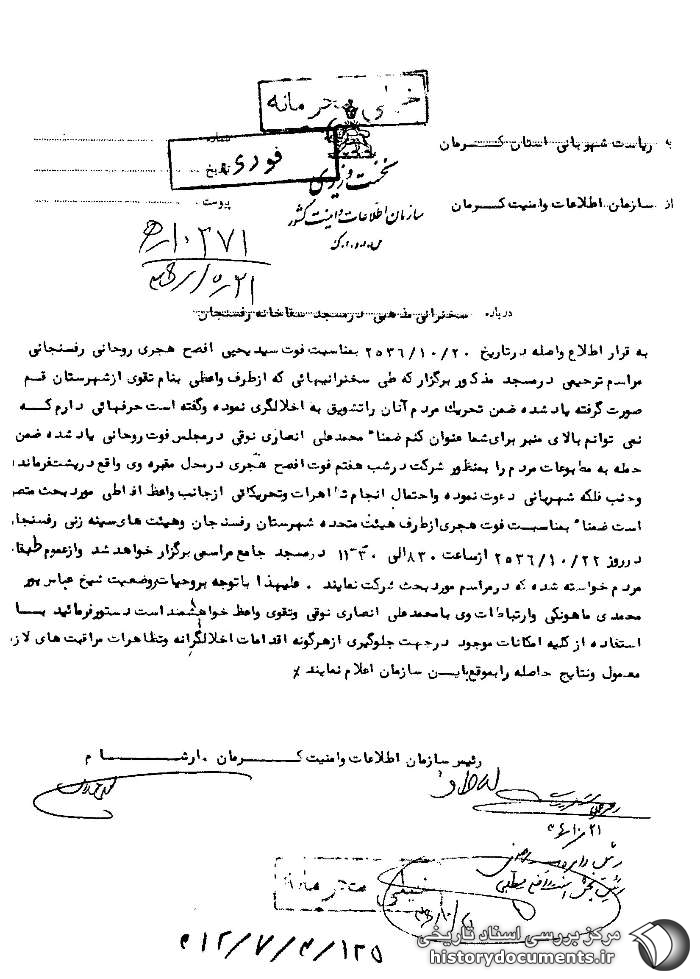 خیلی محرمانه
به ریاست شهربانی استان کرمان
شماره
فوری
تاریخ
نخست وزیری
از سازمان اطلاعات وامنیت کرمان
پیوست
سازمان اطلاعات و امنیت کشور
س.ا.و.ا.ک
۱۰/۲۷۱ﻫ
درباره سخنرانی مذهبی درمسجد سقاخانه رفسنجان
به قرار اطلاع واصله درتاریخ ۲۵۳۶/۱۰/۲۰ بمناسبت فوت سیدیحیی افصح هجری روحانی رفسنجانی
مراسم ترحیمی درمسجد مذکور برگزار که طی سخنرانیهائی که ازطرف واعظی بنام تقوی ازشهرستان قم
صورت گرفته یاد شده ضمن تحریک مردم آنان راتشویق به اخلالگری نموده وگفته است حرفهائی دارم که
نمی توانم بالای منبر برای شما عنوان کنم ضمنا" محمدعلی انصاری نوقی درمجلس فوت روحانی یاد شده ضمن
حمله به مطبوعات مردم را بمنظور شرکت درشب هفتم فوت افصح هجری درمحل مقبره وی واقع درپشت فرماند
وجنب فلکه شهربانی دعوت نموده واحتمال انجام تظاهرات وتحریکاتی ازجانب واعظ افراطی موردبحث متصو
است ضمنا" بمناسبت فوت هجری ازطرف هیئت متحده شهرستان رفسنجان وهیئت های سینه زنی رفسنجا
درروز ۲۵۳۶/۱۰/۲۲ ازساعت ۸۳۰ الی ۱۱۳۰ درمسجد جامع مراسمی برگزار خواهد شد وازعموم طبقا
مردم خواسته شده که درمراسم موردبحث شرکت نمایند . علیهذا باتوجه بروحیات وضعیت شیخ عباس پور
محمدی ماهونکی وارتباطات وی بامحمدعلی انصاری نوقی وتقوی واعظ خواهشمند است دستورفرمائید با
استفاده از کلیه امکانات موجود درجهت جلوگیری ازهرگونه اقدامات اخلالگرانه وتظاهرات مراقبت های لاز
معمول ونتایج حاصله رابموقع باین سازمان اعلام نمایند
رئیس سازمان اطلاعات وامنیت کرمان . آرشام
خیلی محرمانه
۰۱۲/۷/۴/۱۲۵
مرکز بررسی اسناد تاریخی
historydocuments.ir